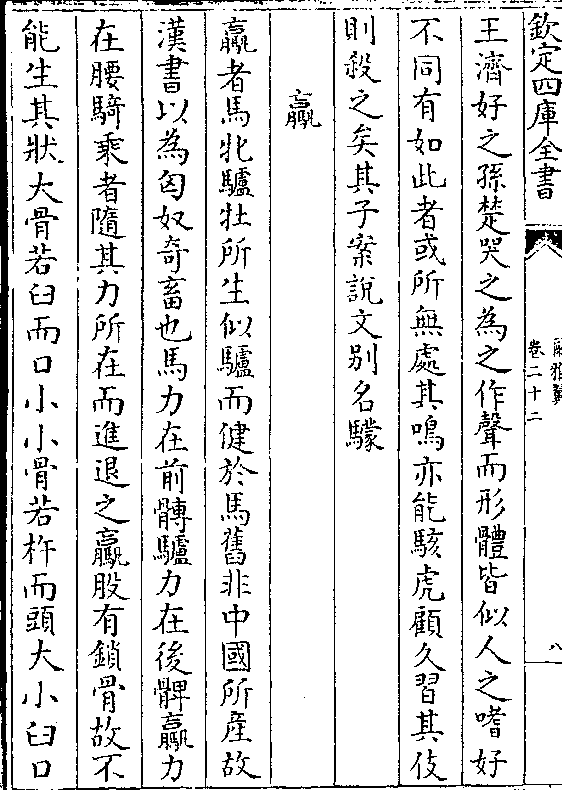 欽定四庫全書
爾雅翼
卷二十二
八
王濟好之孫楚哭之為之作聲而形體皆似人之嗜好
不同有如此者或所無處其鳴亦能駭虎顧久習其伎
則殺之矣其子案說文別名驝
驘
驘者馬牝驢牡所生似驢而健於馬舊非中國所産故
漢書以為匈奴奇畜也馬力在前髆驢力在後髀驘力
在腰騎乘者隨其力所在而進退之驘股有鎖骨故不
能生其狀大骨若臼而口小小骨若杵而頭大小臼口